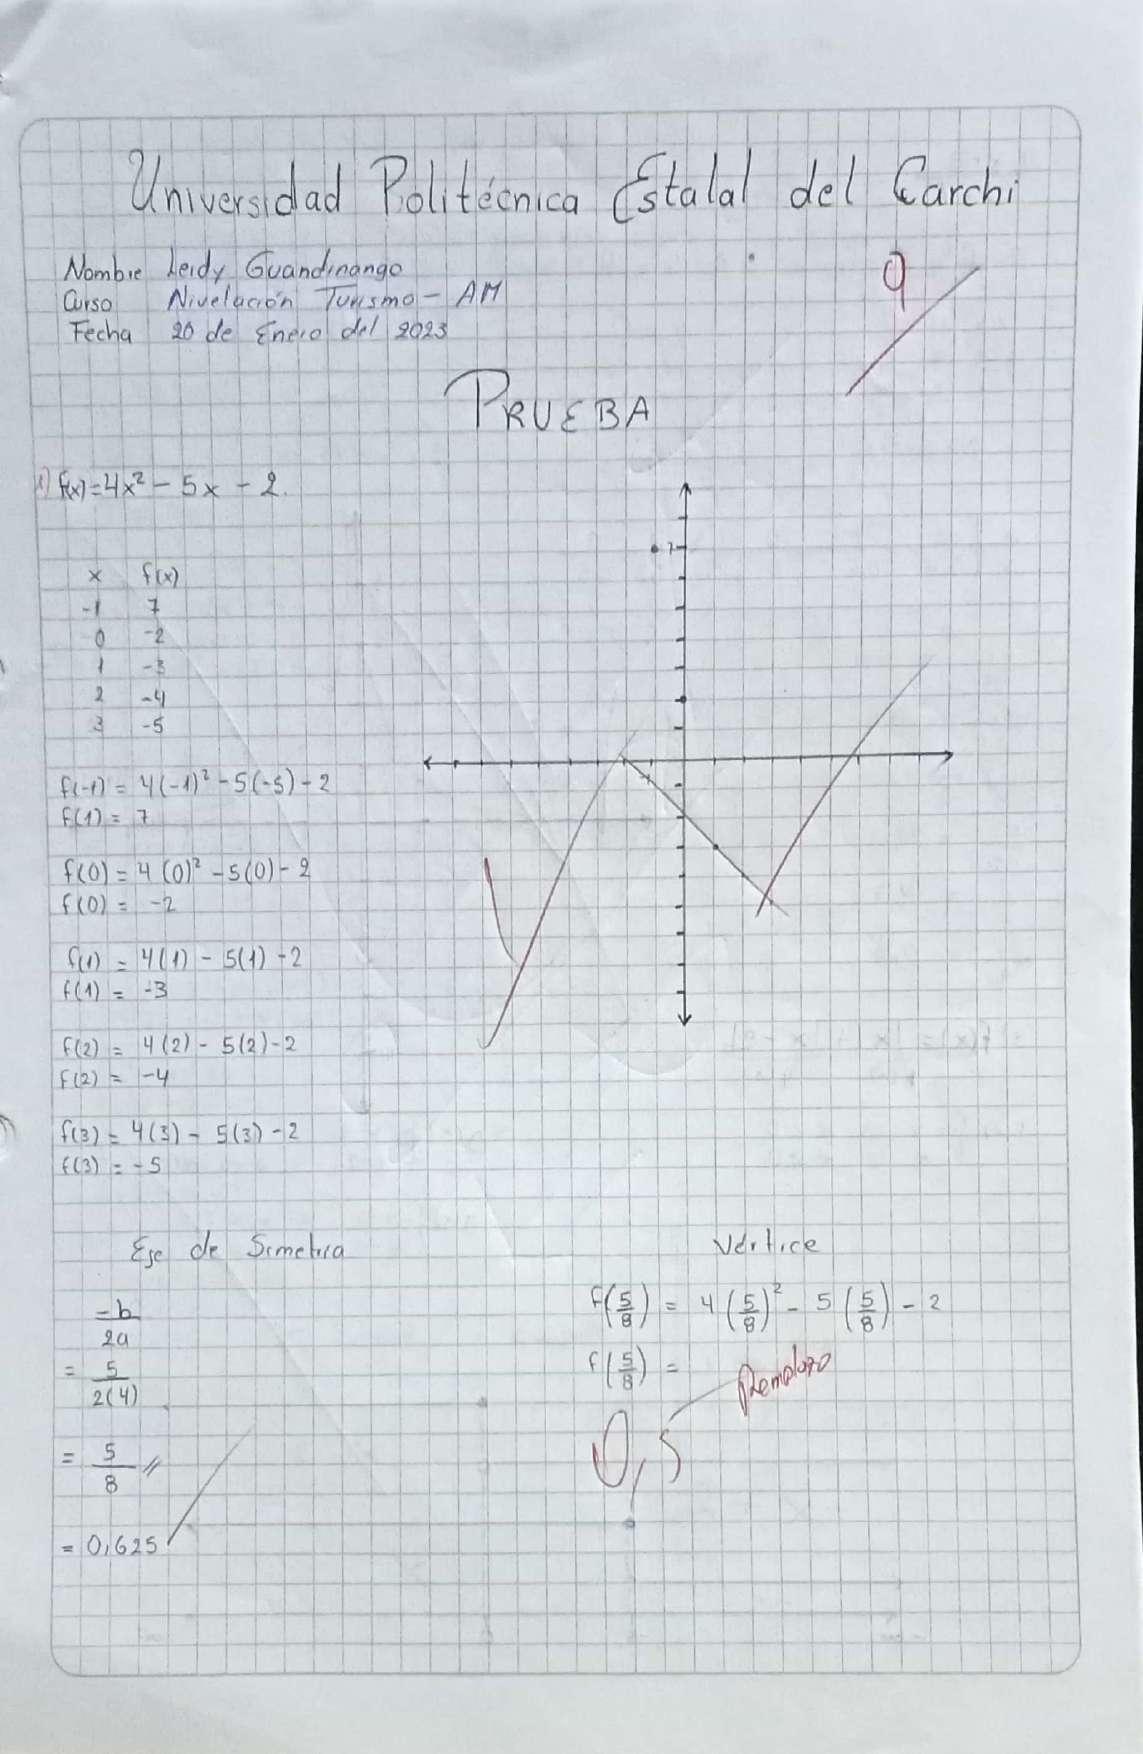 Universidad Politécnica Estalal del Carchi
Nombre Leidy Guandinango
Curso Nivelación Turismo - AM
Fecha 20 de Enero del 2023
9
PRUEBA
1) f(x)=4x² - 5x - 2.
x f(x)
-1 7
0 -2
1 -3
2 -4
3 -5
7
f(-1) = 4(-1)² - 5(-5) - 2
f(1) = 7
f(0) = 4(0)² - 5(0) - 2
f(0) = -2
f(1) = 4(1) - 5(1) - 2
f(1) = -3
f(2) = 4(2) - 5(2) - 2
f(2) = -4
f(3) = 4(3) - 5(3) - 2
f(3) = -5
Eje de Simetria
-b
2a
= 5
2(4)
= 5
8 //
= 0,625
Vértice
f(5/8) = 4(5/8)² - 5(5/8) - 2
f(5/8) =
0,5